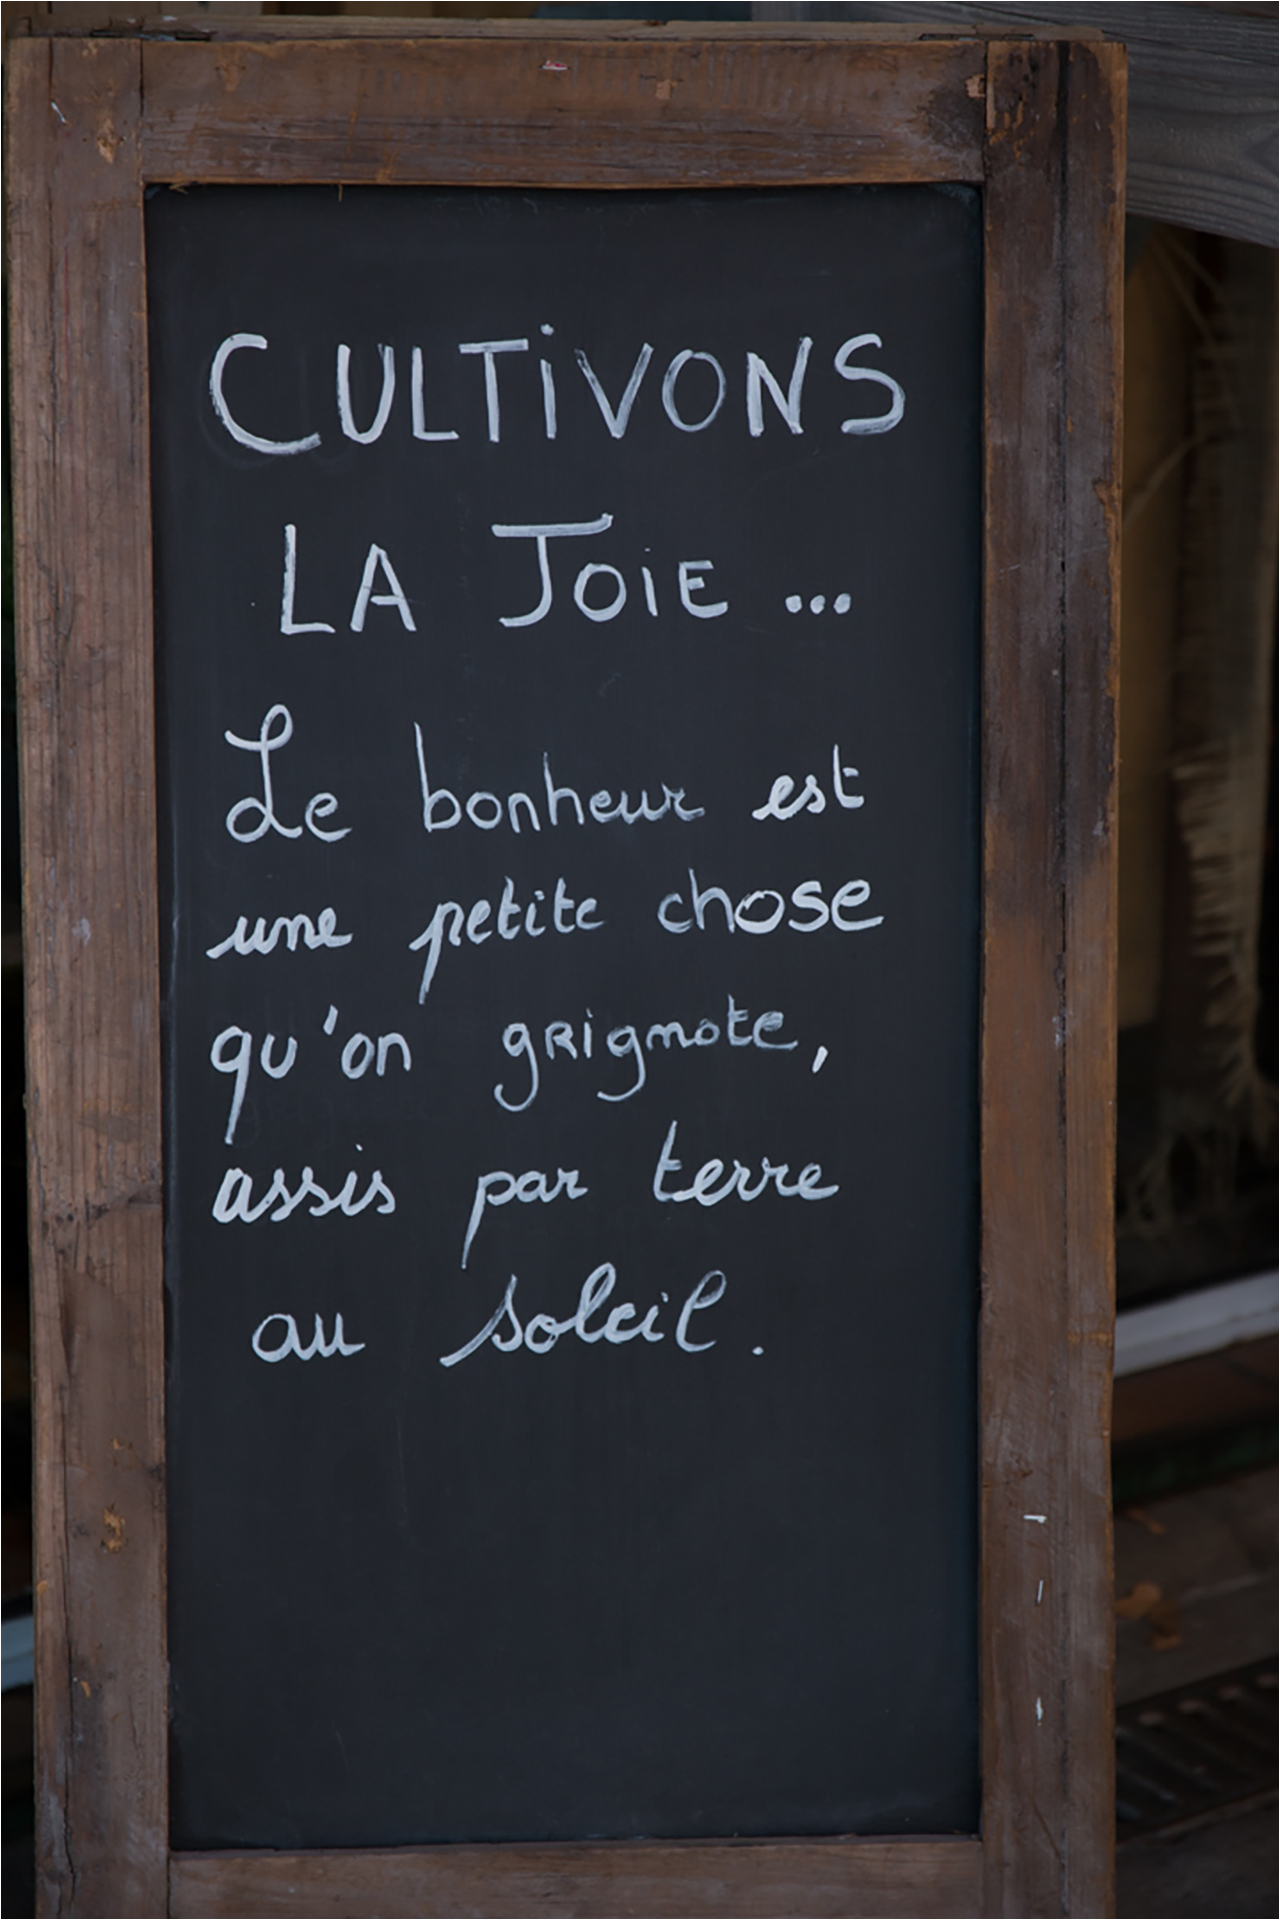 CULTiVONS
LA JOiE ...
Le bonheur est
une petite chose
qu'on grignote,
assis par terre
au soleil.